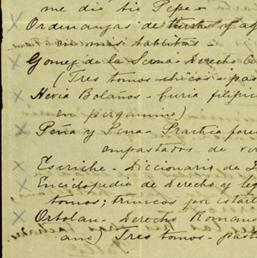 me dió tio Pepe
Ordenanzas de
en mis hablitos
Gomez de la Serna - Derecho
(Tres tomos chicos - pas
Hevia Bolaños - Curia filípic
en pergamino)
Peña y Peña - Practica for
empastados de
Escriche - Diccionario de
Enciclopedia de Derecho y leg
tomos; truncos por estar
Ortolan - Derecho Romano
ano) Tres tomos - past